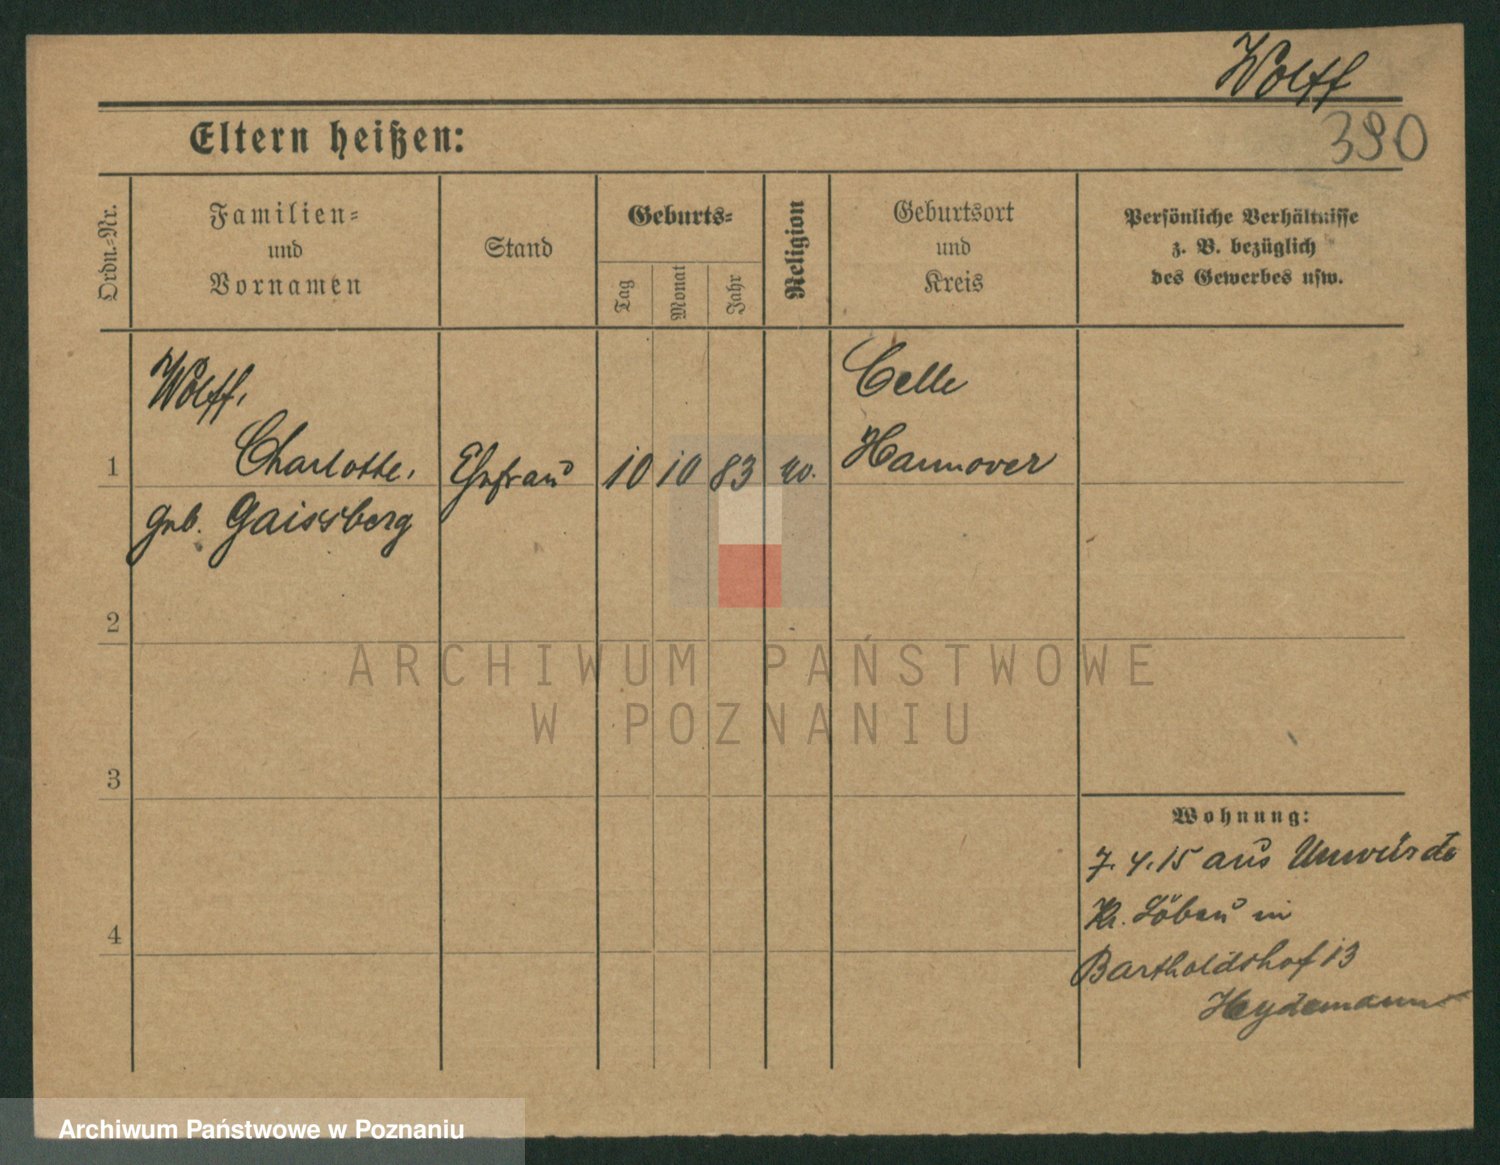 Wolff
390
Eltern heißen:
Ordn.-Nr.
Familien-
und
Vornamen
Stand
Geburts-
Tag
Monat
Jahr
Religion
Geburtsort
und
Kreis
Persönliche Verhältnisse
z. B. bezüglich
des Gewerbes usw.
Wolff,
Charlotte,
1
geb. Gaissberg
Ehefrau
10 10 83 ev.
Celle
Hannover
2
3
4
Wohnung:
7.4.15 aus Unwürde
Kr. Löbau in
Bartholdshof 13
Heydemann
ARCHIWUM PAŃSTWOWE
W POZNANIU
Archiwum Państwowe w Poznaniu